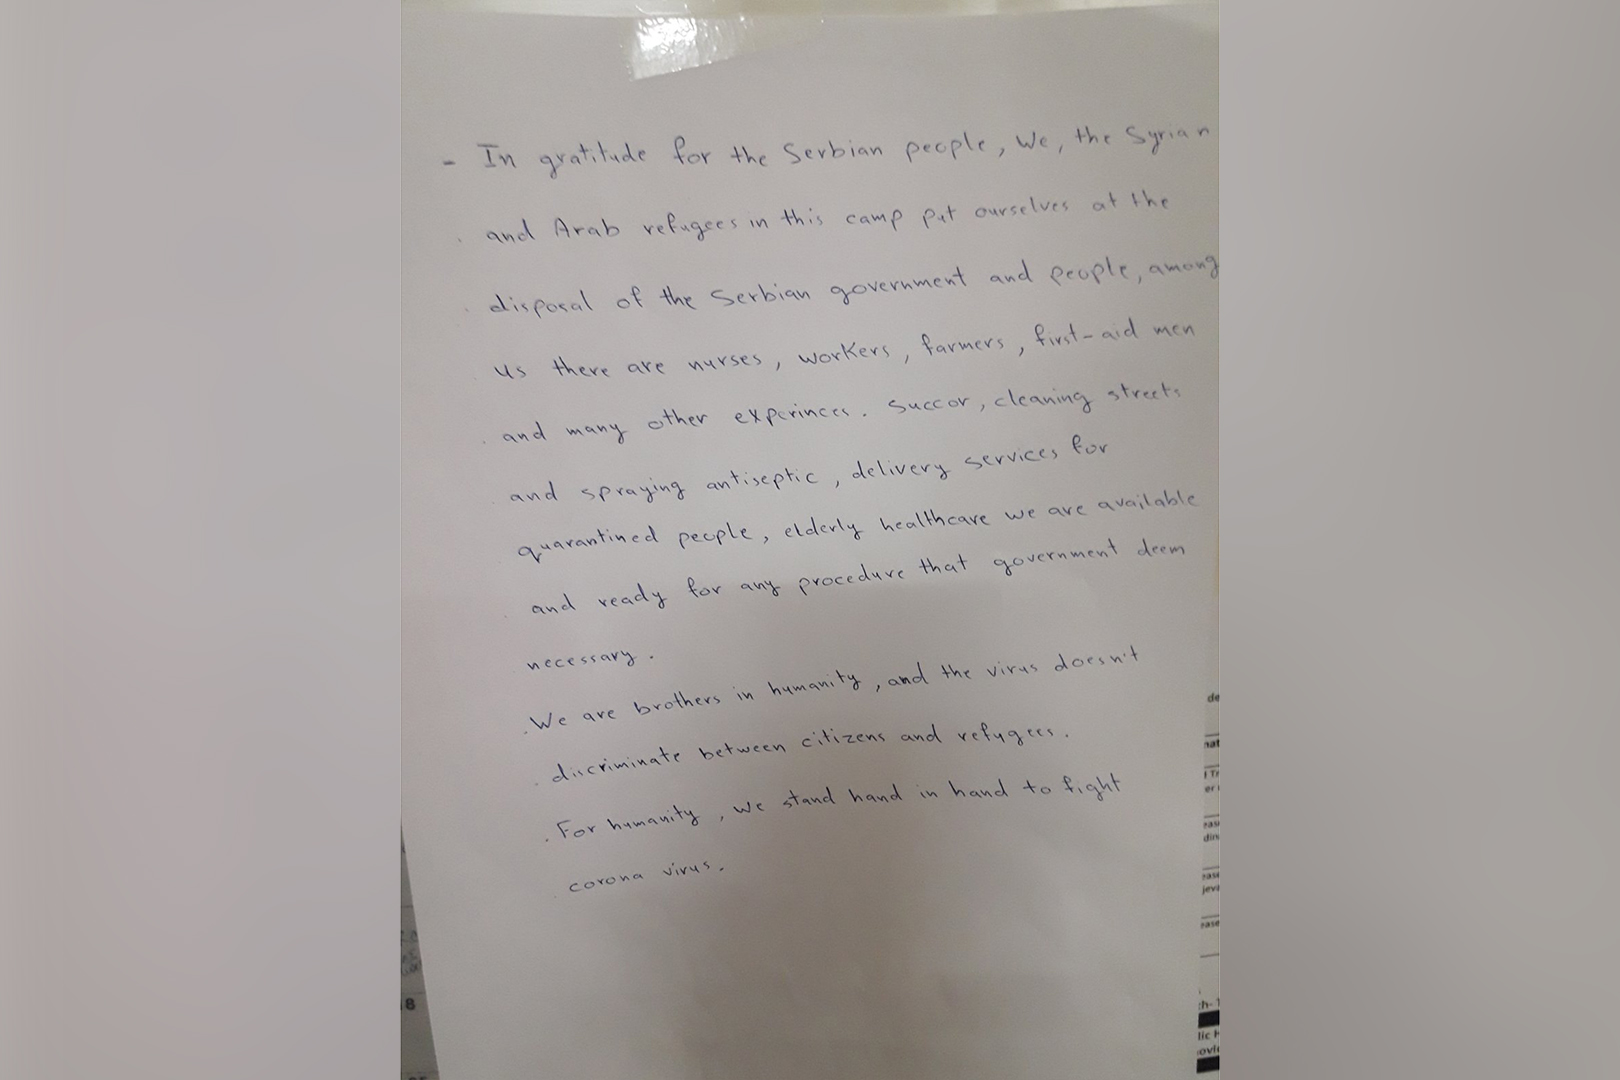 - In gratitude for the Serbian people, We, the Syrian
and Arab refugees in this camp put ourselves at the
disposal of the Serbian government and people, among
us there are nurses, workers, farmers, first-aid men
and many other experinces. Succor, cleaning streets
and spraying antiseptic, delivery services for
quarantined people, elderly healthcare we are available
and ready for any procedure that government deem
necessary.
We are brothers in humanity, and the virus doesn't
discriminate between citizens and refugees.
For humanity, we stand hand in hand to fight
corona virus.
8